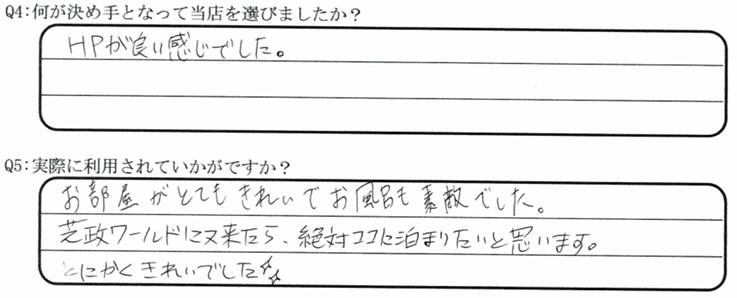 Q4:何が決め手となって当店を選びましたか？
HPが良い感じでした。
Q5:実際に利用されていかがですか？
お部屋がとてもきれいでお風呂も素敵でした。
芝政ワールドに又来たら、絶対ココに泊まりたいと思います。
とにかくきれいでした☆☆